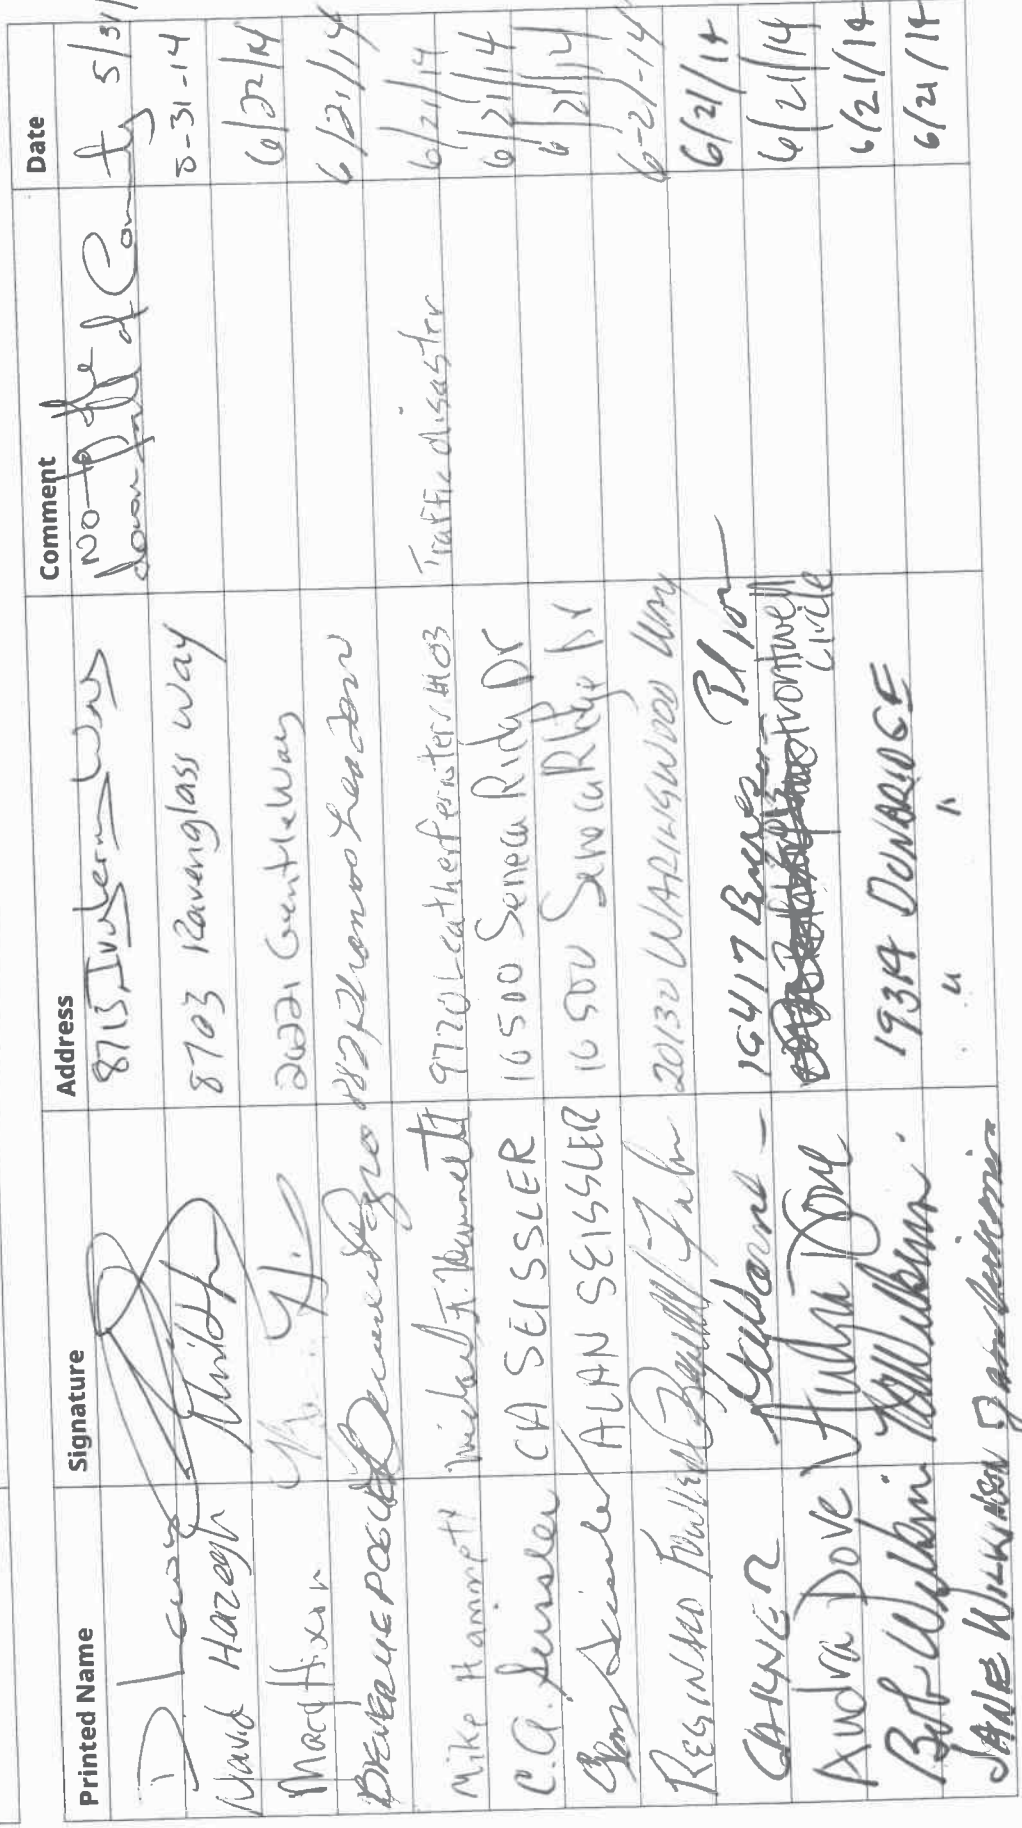 Printed Name Signature Address Comment Date
D Lewis 8713 Way No to the downfall of Community 5/31/
David Hazegh 8703 Ravenglass Way 5-31-14
Macy Hixson 20221 Gentle Way 6/22/14
6/21/14
Mike Hammett Michael F. Hammett 9720 Leatherfern terr #403 Traffic disaster 6/21/14
C.A. Seissler CA SEISSLER 16500 Seneca Ridge Dr 6/21/14
Alan Seissler ALAN SEISSLER 16500 Seneca Ridge Dr 6/21/14
REGINALD Fowler 20130 WARINGWOOD Way 6-21-14
GARNER 16417 6/21/14
Audra Dove Audra Dove Circle 6/21/14
Bob Wilkinson 19314 DUNBRIDGE 6/21/14
JANE WILKINSON Jane Wilkinson " " 6/21/14